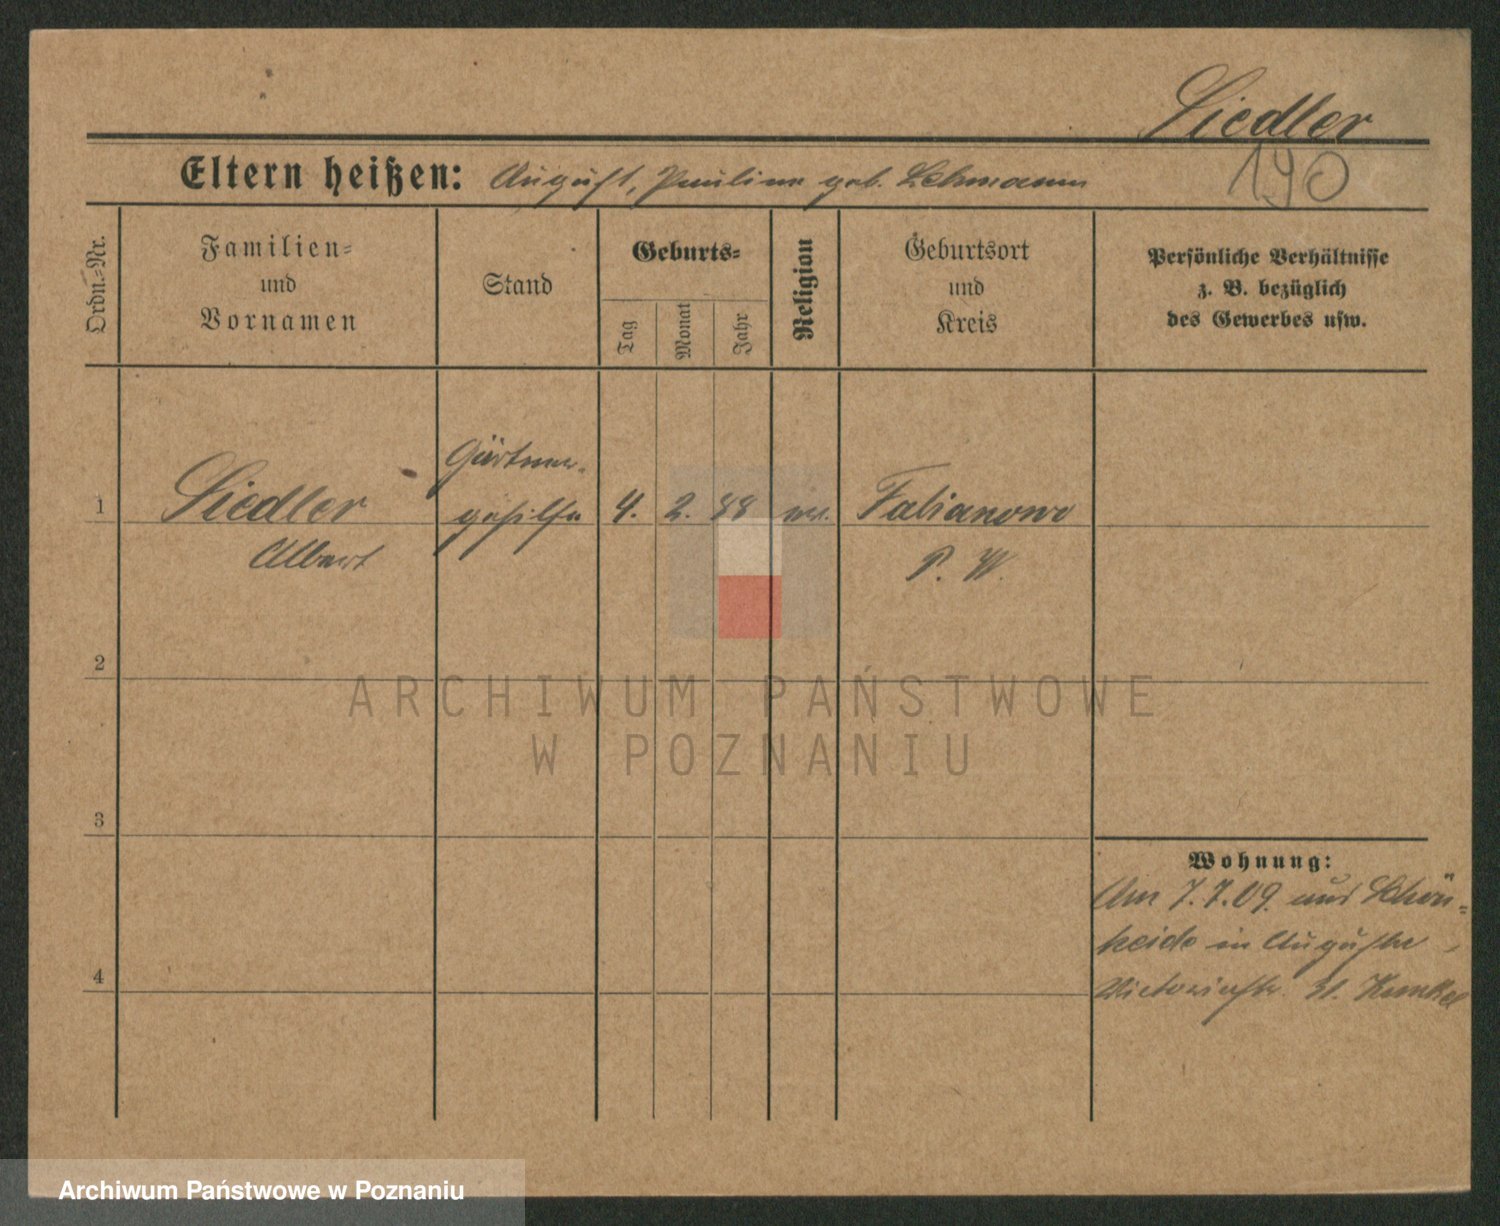 Siedler
190
Eltern heißen: August, Pauline geb. Lehmann
Ordn.=Nr.
Familien=
und
Vornamen
Stand
Geburts=
Tag
Monat
Jahr
Religion
Geburtsort
und
Kreis
Persönliche Verhältnisse
z. B. bezüglich
des Gewerbes usw.
1
Siedler
Albert
Gärtner-
gehilfe
4. 2. 88
Fabianowo
P. W.
2
3
4
Wohnung:
Am 7.7.09. aus Schön=
heide in Auguste
Victoriastr.
ARCHIWUM PAŃSTWOWE
W POZNANIU
Archiwum Państwowe w Poznaniu